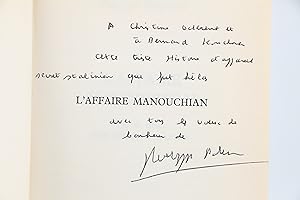 A Christine Ockrent et
à Bernard Kouchner
Cette triste histoire d'appareil
secret stalinien que fut hélas
L'AFFAIRE MANOUCHIAN
avec tous les vœux de
bonheur de
Philippe